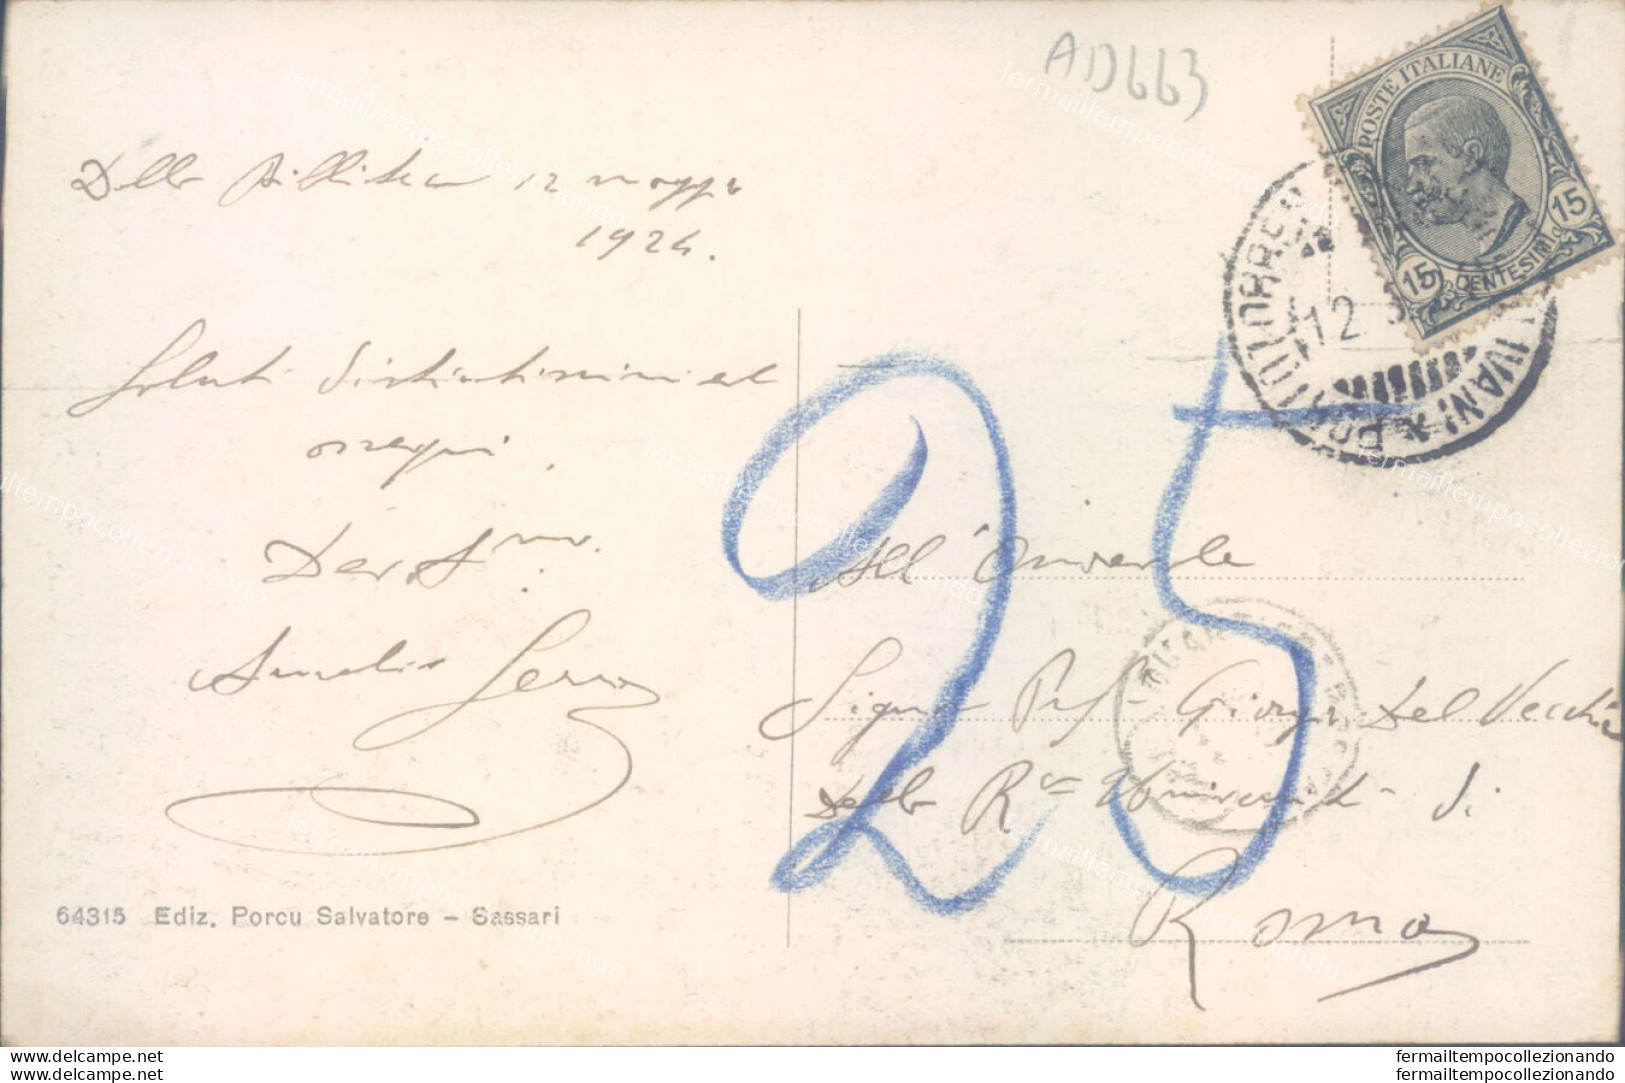 AD663
POSTE ITALIANE
15 CENTESIMI 15
12
Della Biblioteca 12 maggio
1924.
Saluti distintissimi ed
ossequi.
Dev. S mo.
Aurelio Serra
64315 Ediz. Porcu Salvatore - Sassari
25
All'
Signor Prof Giorgio Del Vecchio
della Ra Università di
Roma
www.delcampe.net
www.delcampe.net
fermailtempocollezionando
fermailtempocollezionando